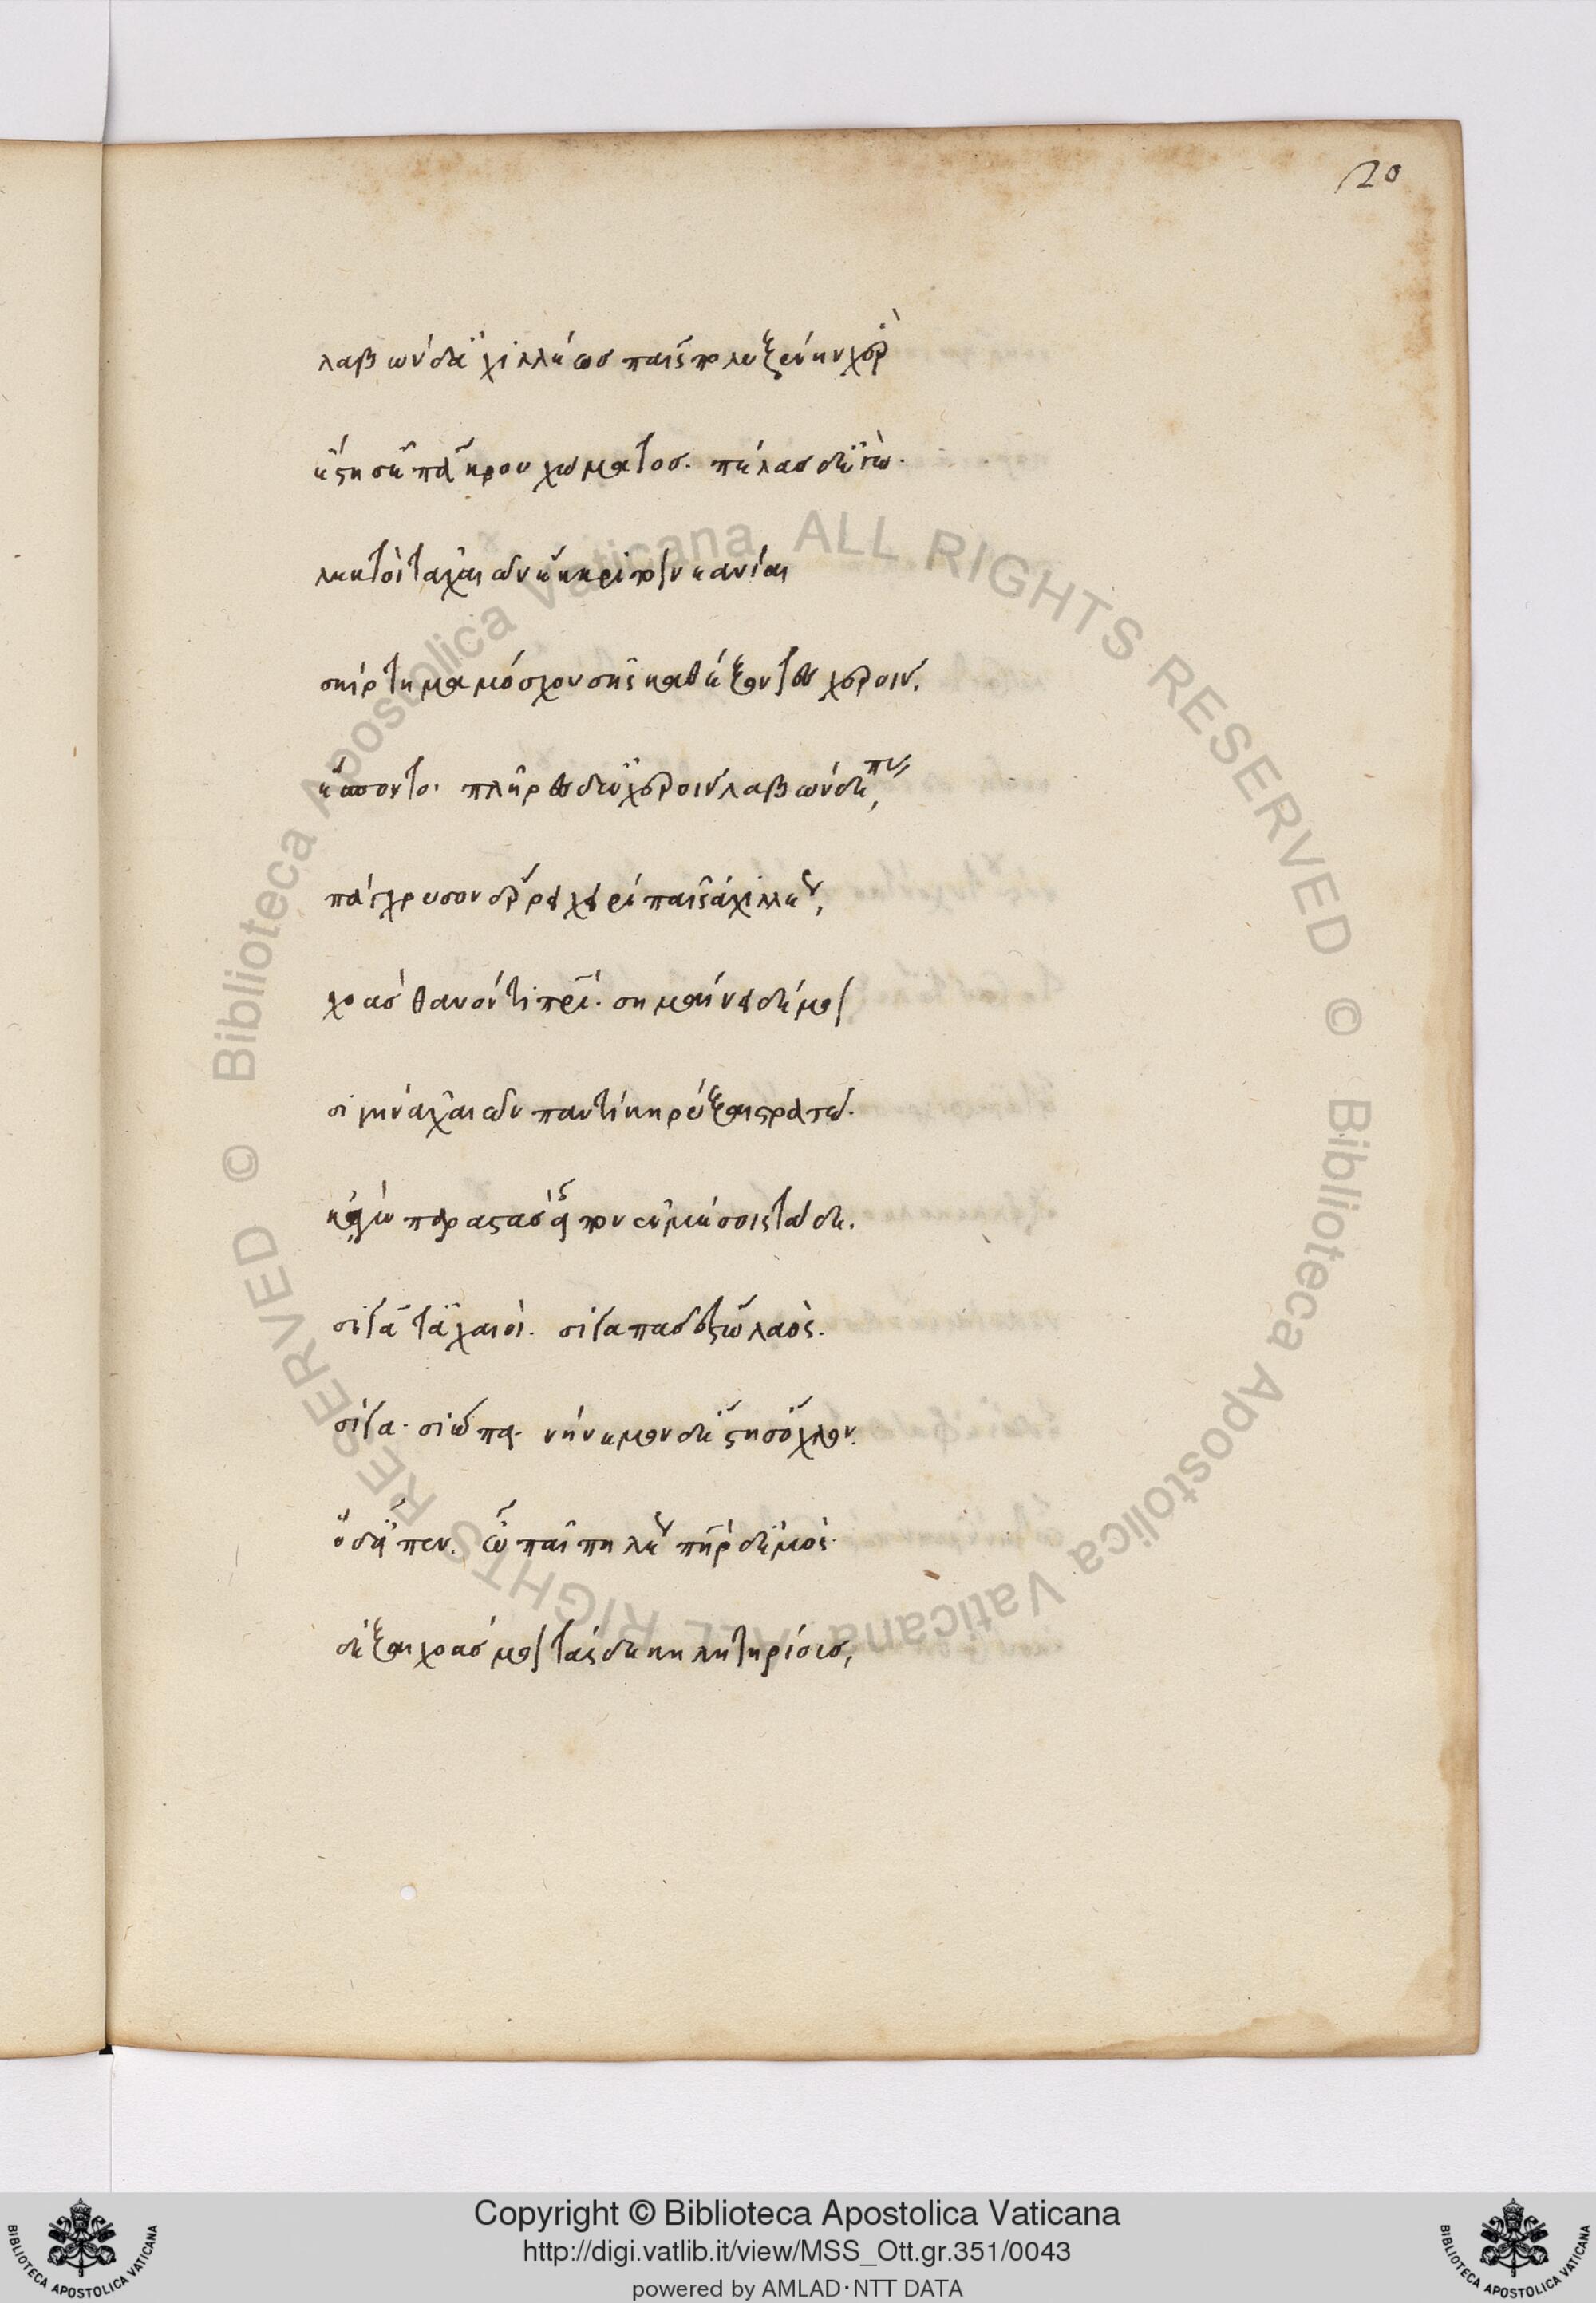 20
λαβὼν δ' ἀχιλλέως παῖς πολυξένην χερὸς
ἔστησ' ἐπ' ἄκρου χώματος. πέλας δ' ἐγώ.
λεκτοί τ' ἀχαιῶν ἔκκριτοι νεανίαι
σκίρτημα μόσχου σῆς καθέξοντες χεροῖν.
ἕσποντο. πλῆρες δ' ἐν χεροῖν λαβὼν δέπας
πάγχρυσον αἴρει χειρὶ παῖς ἀχιλλέως,
χοὰς θανόντι πατρί. σημαίνει δέ μοι
σιγὴν ἀχαιῶν παντὶ κηρύξαι στρατῷ.
κἀγὼ παραστὰς εἶπον ἐν μέσοις τάδε.
σιγᾶτ' ἀχαιοί. σῖγα πᾶς ἔστω λαός.
σίγα. σιώπα. νήνεμον δ' ἔστησ' ὄχλον.
ὁ δ' εἶπεν. ὦ παῖ πηλέως πατὴρ δ' ἐμός.
δέξαι χοάς μοι τάσδε κηλητηρίους,
Copyright © Biblioteca Apostolica Vaticana
http://digi.vatlib.it/view/MSS_Ott.gr.351/0043
powered by AMLAD·NTT DATA
© Biblioteca Apostolica Vaticana ALL RIGHTS RESERVED © Biblioteca Apostolica Vaticana ALL RIGHTS RESERVED
BIBLIOTECA APOSTOLICA VATICANA
BIBLIOTECA APOSTOLICA VATICANA